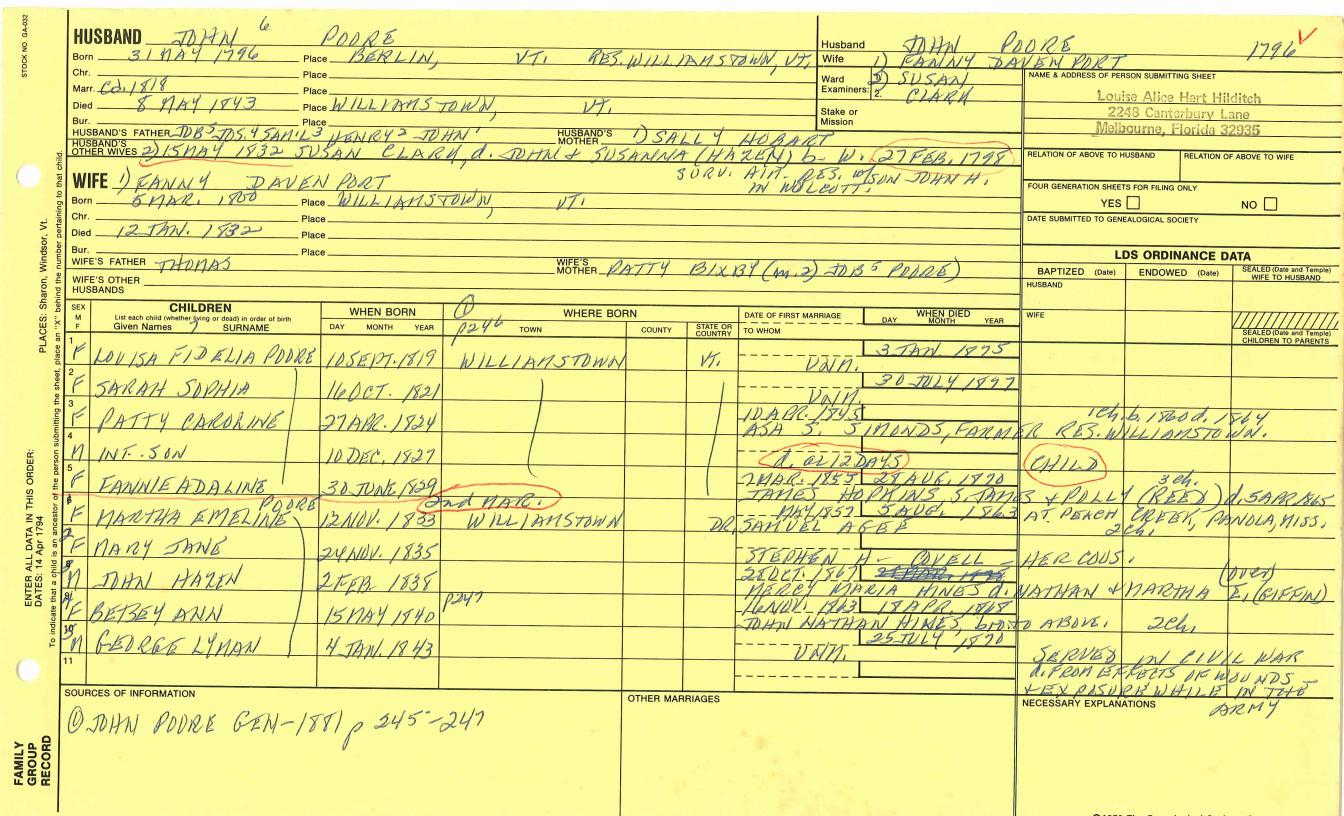 STOCK NO. GA-032
HUSBAND JOHN 6 POORE
Born 31 MAY 1796 Place BERLIN, VT. RES. WILLIAMSTOWN, VT.
Chr. Place
Marr. ca. 1818 Place
Died 8 MAY 1843 Place WILLIAMSTOWN, VT.
Bur. Place
HUSBAND'S FATHER JOB 5 JOS. 4 SAM'L 3 HENRY 2 JOHN 1 HUSBAND'S MOTHER 1) SALLY HOBART
HUSBAND'S OTHER WIVES 2) 15 MAY 1832 SUSAN CLARK, d. JOHN & SUSANNA (HAZEN) b. W. 27 FEB. 1798
SURV. AM. RES. W/SON JOHN H.
IN WOLCOTT.
WIFE 1) FANNY DAVENPORT
Born 5 MAR. 1800 Place WILLIAMSTOWN, VT.
Chr. Place
Died 12 JAN. 1832 Place
Bur. Place
WIFE'S FATHER THOMAS WIFE'S MOTHER PATTY BIXBY (m. 2) JOB 5 POORE)
WIFE'S OTHER HUSBANDS
Husband JOHN POORE 1796
Wife 1) FANNY DAVENPORT
Ward Examiners: 2) SUSAN
2. CLARK
Stake or Mission
NAME & ADDRESS OF PERSON SUBMITTING SHEET
Louise Alice Hart Hilditch
2248 Canterbury Lane
Melbourne, Florida 32935
RELATION OF ABOVE TO HUSBAND RELATION OF ABOVE TO WIFE
FOUR GENERATION SHEETS FOR FILING ONLY
YES NO
DATE SUBMITTED TO GENEALOGICAL SOCIETY
LDS ORDINANCE DATA
BAPTIZED (Date) ENDOWED (Date) SEALED (Date and Temple) WIFE TO HUSBAND
HUSBAND
WIFE
SEALED (Date and Temple) CHILDREN TO PARENTS
SEX M F
CHILDREN
List each child (whether living or dead) in order of birth
Given Names 7 SURNAME
WHEN BORN
DAY MONTH YEAR
① p246
WHERE BORN
TOWN COUNTY STATE OR COUNTRY
DATE OF FIRST MARRIAGE
TO WHOM
WHEN DIED
DAY MONTH YEAR
1 F LOUISA FIDELIA POORE 10 SEPT. 1819 WILLIAMSTOWN VT. 3 JAN. 1875
UNM.
2 F SARAH SOPHIA 16 OCT. 1821 30 JULY 1897
UNM.
3 F PATTY CAROLINE 27 APR. 1824 10 APR. 1845 1 ch. b. 1860 d. 1864
ASA S. SIMONDS, FARMER RES. WILLIAMSTOWN.
4 M INT. SON 10 DEC. 1827 d. al 12 DAYS CHILD
5 F FANNIE ADALINE 30 JUNE 1829 7 MAR. 1855 28 AUG. 1870 3 ch.
JAMES HOPKINS, S. JAMES & POLLY (REED) d. 5 APR 1865
2nd MAR.
1 F MARTHA EMELINE POORE 12 NOV. 1833 WILLIAMSTOWN MAY 1857 5 AUG. 1863 AT PEACH CREEK, PANOLA, MISS.
DR. SAMUEL AGEE 2 ch.
2 F MARY JANE 24 NOV. 1835
STEPHEN H- COVELL - HER COUS.
M JOHN HAZEN 2 FEB. 1838 28 OCT. 1867 (over)
MERCY MARIA HINES d. NATHAN & MARTHA E. (GIFFIN)
p247
F BETSEY ANN 15 MAY 1840 16 NOV. 1863 18 APR. 1868
JOHN NATHAN HINES, bro. TO ABOVE. 2 ch.
10 M GEORGE LYMAN 4 JAN. 1843 25 JULY 1870
UNM. SERVED IN CIVIL WAR
11 d. FROM EFFECTS OF WOUNDS
& EXPOSURE WHILE IN THE
ARMY
SOURCES OF INFORMATION
① JOHN POORE GEN-1881 p 245-247
OTHER MARRIAGES
NECESSARY EXPLANATIONS
FAMILY GROUP RECORD
ENTER ALL DATA IN THIS ORDER:
PLACES: Sharon, Windsor, Vt.
DATES: 14 Apr 1794
To indicate that a child is an ancestor of the person submitting the sheet, place an "X" behind the number pertaining to that child.